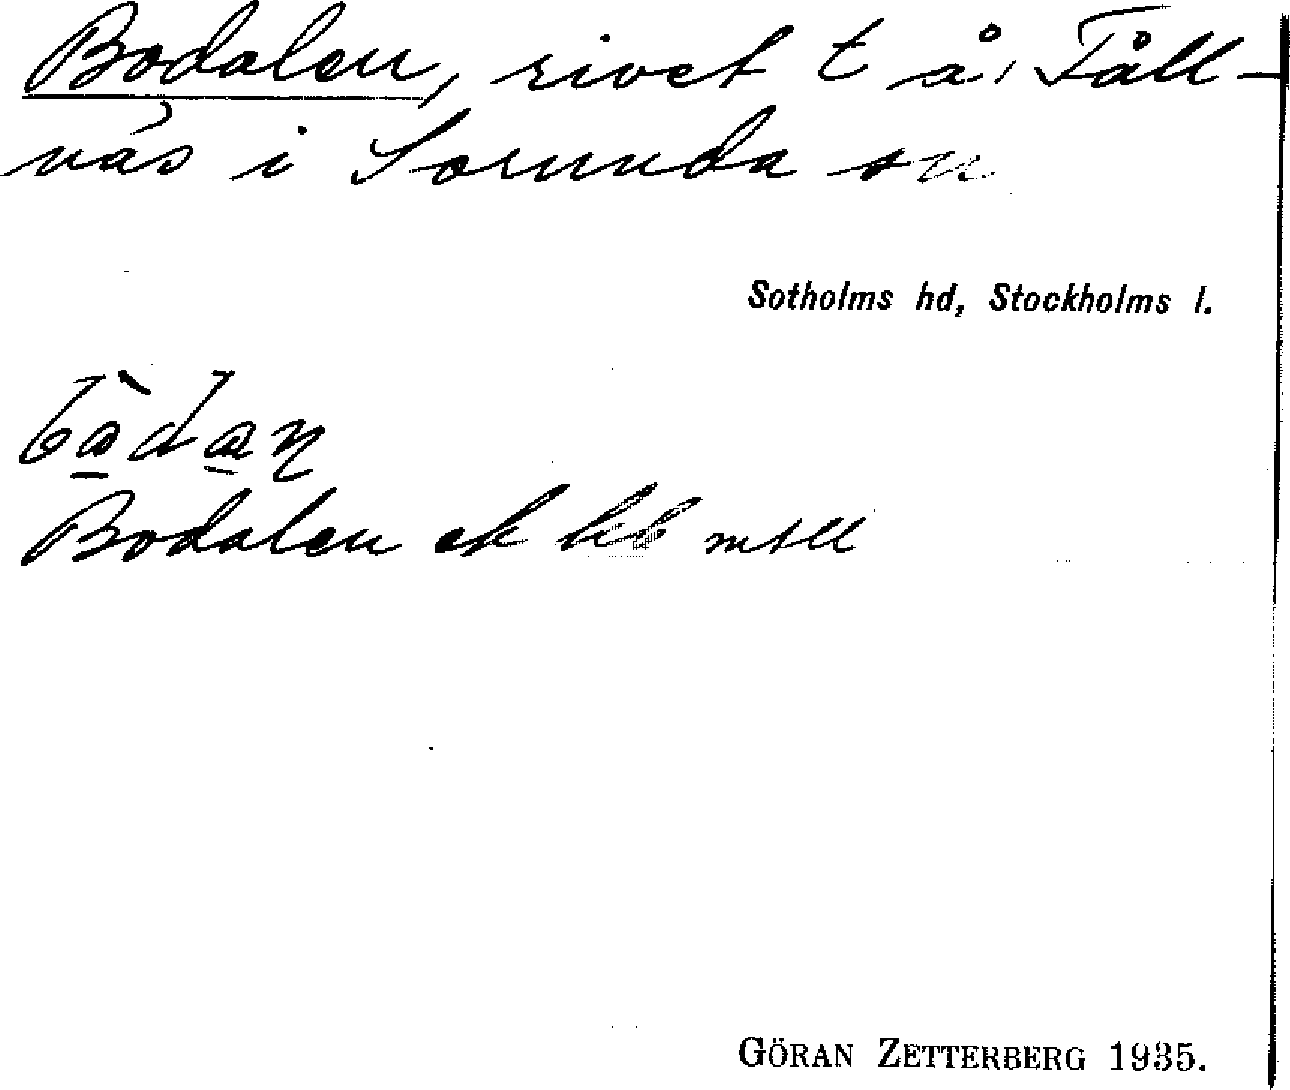 Bodalen, rivet t å, Fåll-
näs i Sorunda sn
Sotholms hd, Stockholms l.
Bodalen ek
GÖRAN ZETTERBERG 1935.